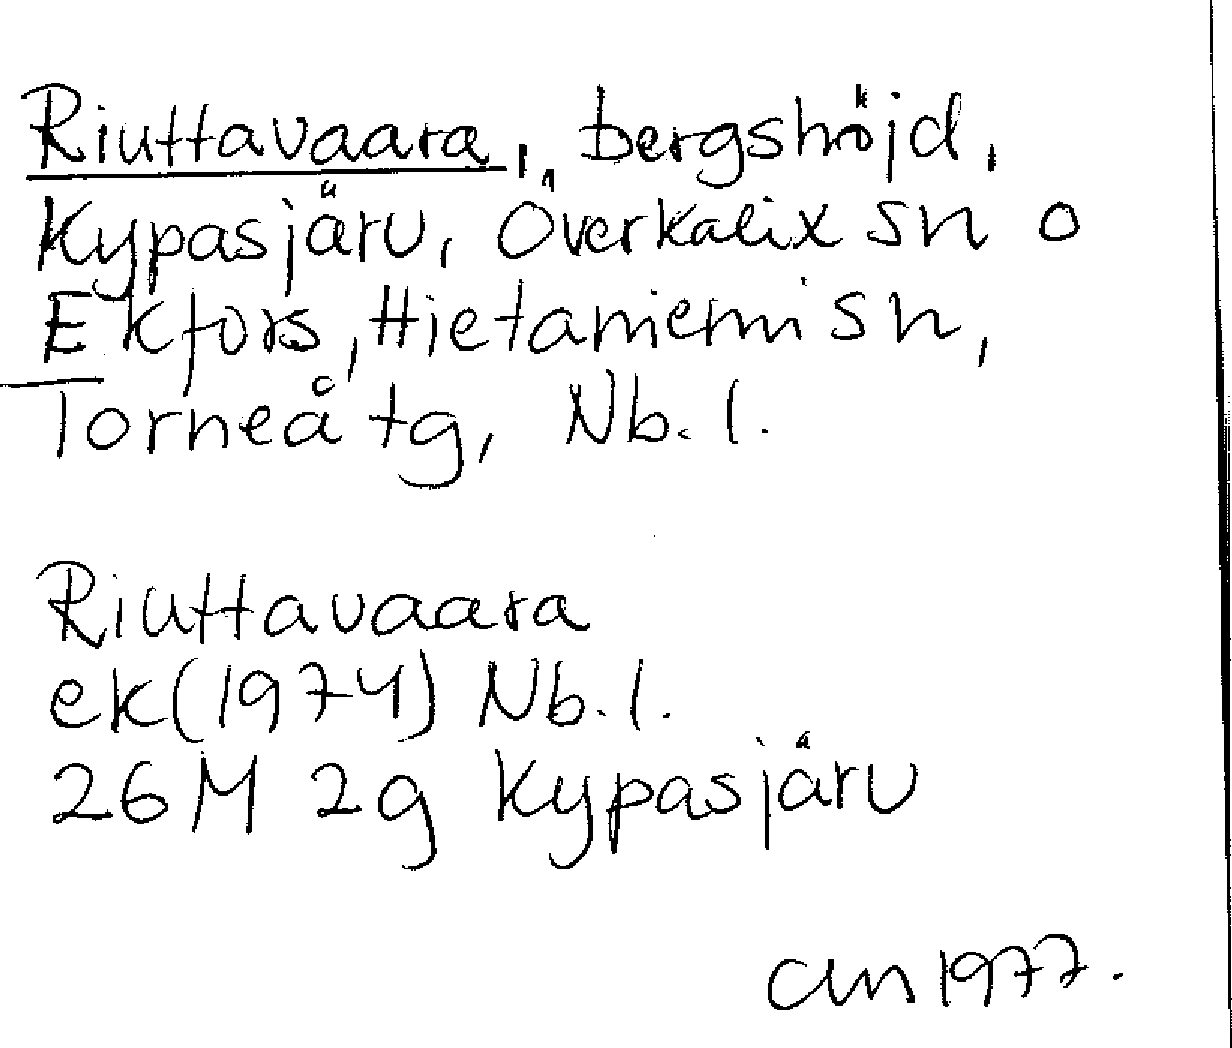 Riuttavaara, bergshöjd,
Kypasjärv, Överkalix sn o
Ekfors, Hietaniemi sn,
Torneå tg, Nb. l.
Riuttavaara
ek (1974) Nb. l.
26 M 2g Kypasjärv
1977.